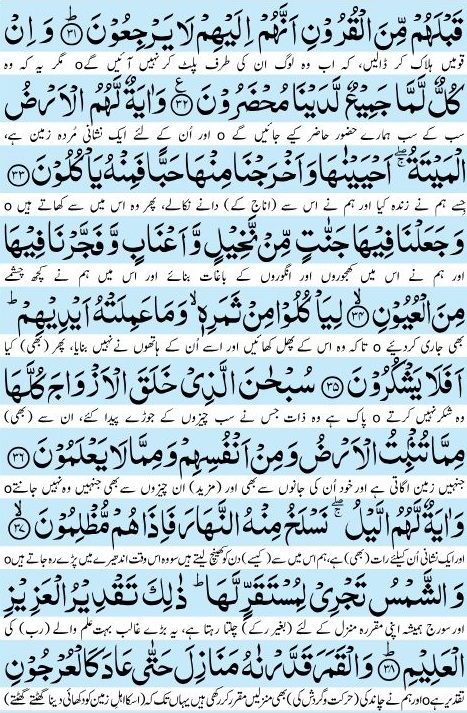 قَبْلَهُمْ مِّنَ الْقُرُوْنِ اَنَّهُمْ اِلَيْهِمْ لَا يَرْجِعُوْنَ ؕ ﴿۳۱﴾ وَ اِنْ
قومیں ہلاک کر ڈالیں، کہ اب وہ لوگ ان کی طرف پلٹ کر نہیں آئیں گے o مگر یہ کہ وہ
كُلٌّ لَّمَّا جَمِيْعٌ لَّدَيْنَا مُحْضَرُوْنَ ﴿۳۲﴾ ع وَ اٰيَةٌ لَّهُمُ الْاَرْضُ
سب کے سب ہمارے حضور حاضر کیے جائیں گے o اور اُن کے لئے ایک نشانی مُردہ زمین ہے،
الْمَيْتَةُ ۖۚ اَحْيَيْنٰهَا وَ اَخْرَجْنَا مِنْهَا حَبًّا فَمِنْهُ يَاْكُلُوْنَ ﴿۳۳﴾
جسے ہم نے زندہ کیا اور ہم نے اس سے (اناج کے) دانے نکالے، پھر وہ اس میں سے کھاتے ہیں o
وَ جَعَلْنَا فِيْهَا جَنّٰتٍ مِّنْ نَّخِيْلٍ وَّ اَعْنَابٍ وَّ فَجَّرْنَا فِيْهَا
اور ہم نے اس میں کھجوروں اور انگوروں کے باغات بنائے اور اس میں ہم نے کچھ چشمے
مِنَ الْعُيُوْنِ ۙ ﴿۳۴﴾ لِيَاْكُلُوْا مِنْ ثَمَرِهٖ ۙ وَ مَا عَمِلَتْهُ اَيْدِيْهِمْ ؕ
بھی جاری کردیئے o تاکہ وہ اس کے پھل کھائیں اور اسے اُن کے ہاتھوں نے نہیں بنایا، پھر (بھی) کیا
اَفَلَا يَشْكُرُوْنَ ﴿۳۵﴾ سُبْحٰنَ الَّذِيْ خَلَقَ الْاَزْوَاجَ كُلَّهَا
وہ شکر نہیں کرتے o پاک ہے وہ ذات جس نے سب چیزوں کے جوڑے پیدا کئے، ان سے (بھی)
مِمَّا تُنْۢبِتُ الْاَرْضُ وَ مِنْ اَنْفُسِهِمْ وَ مِمَّا لَا يَعْلَمُوْنَ ﴿۳۶﴾
جنہیں زمین اگاتی ہے اور خود اُن کی جانوں سے بھی اور (مزید) ان چیزوں سے بھی جنہیں وہ نہیں جانتے o
وَ اٰيَةٌ لَّهُمُ الَّيْلُ ۖۚ نَسْلَخُ مِنْهُ النَّهَارَ فَاِذَا هُمْ مُّظْلِمُوْنَ ۙ ﴿۳۷﴾
اور ایک نشانی اُن کیلئے رات (بھی) ہے، ہم اس میں سے (کیسے) دن کو کھینچ لیتے ہیں سو وہ اس وقت اندھیرے میں پڑے رہ جاتے ہیں o
وَ الشَّمْسُ تَجْرِيْ لِمُسْتَقَرٍّ لَّهَا ؕ ذٰلِكَ تَقْدِيْرُ الْعَزِيْزِ
اور سورج ہمیشہ اپنی مقررہ منزل کے لئے (بغیر رکے) چلتا رہتا ہے، یہ بڑے غالب بہت علم والے (رب) کی
الْعَلِيْمِ ؕ ﴿۳۸﴾ وَ الْقَمَرَ قَدَّرْنٰهُ مَنَازِلَ حَتّٰى عَادَ كَالْعُرْجُوْنِ
تقدیر ہے o اور ہم نے چاند کی (حرکت و گردش کی) بھی منزلیں مقرر کر رکھی ہیں یہاں تک کہ (اس کا اہلِ زمین کو دکھائی دینا گھٹتے گھٹتے)